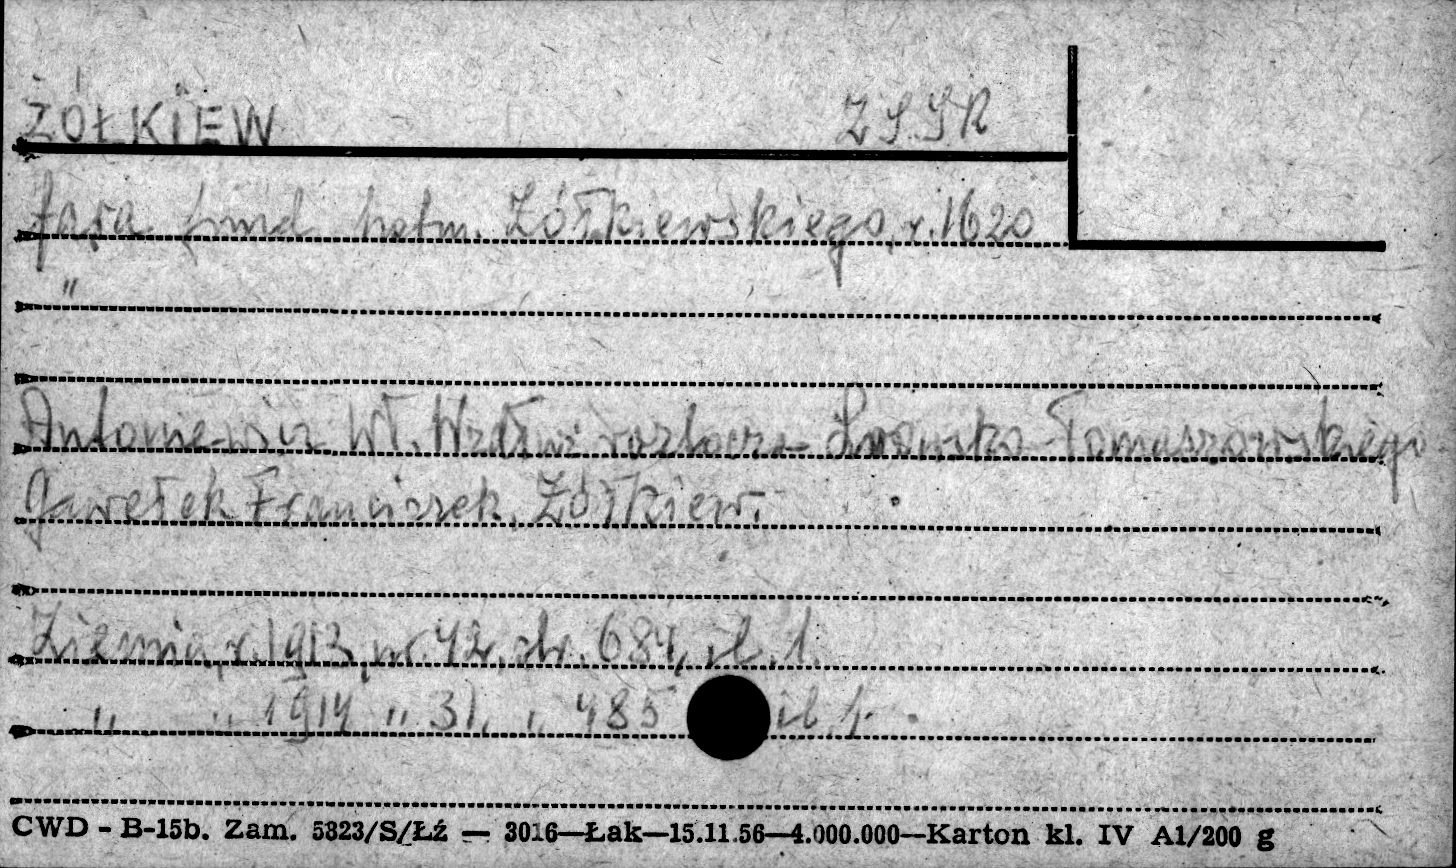 ŻÓŁKIEW ZSSR
fara fund hetm. Żółkiewskiego, r. 1620
"
Antoniewicz Wł. Wzdłuż roztocza Lwowsko-Tomaszowskiego
Gawełek Franciszek, Żółkiew.
Ziemia, r. 1913, nr. 42, str. 684, il. 1.
" " 1914 " 31, " 485 il 1.
CWD - B-15b. Zam. 5323/S/Łź — 3016—Łak—15.11.56—4.000.000—Karton kl. IV A1/200 g